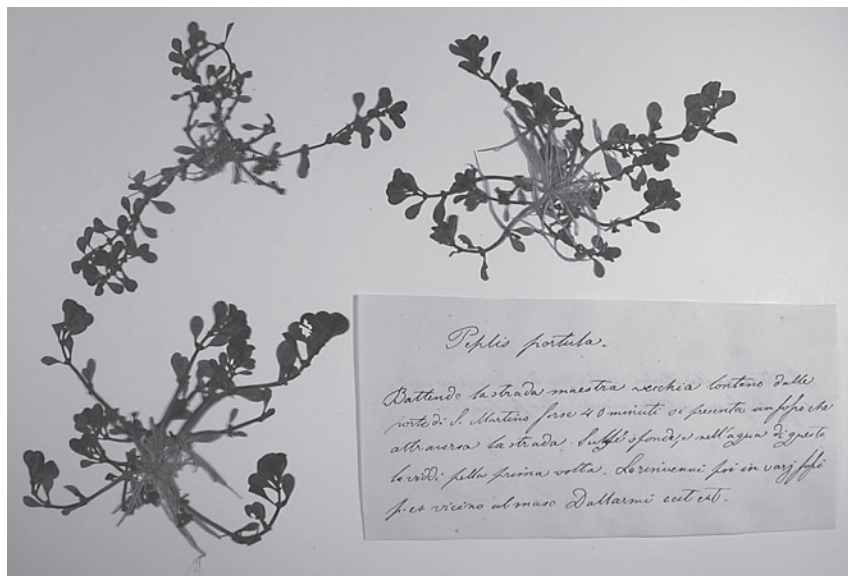 Peplis portula.
Battendo la strada maestra vecchia lontano dalle
porte di S. Martino forse 40 minuti si presenta un fosso che
attraversa la strada. Sulle sponde, e nell'agua di questo
la viddi pella prima volta. La rinvenni poi in varj fossi
p. es vicino al maso Dallarmi